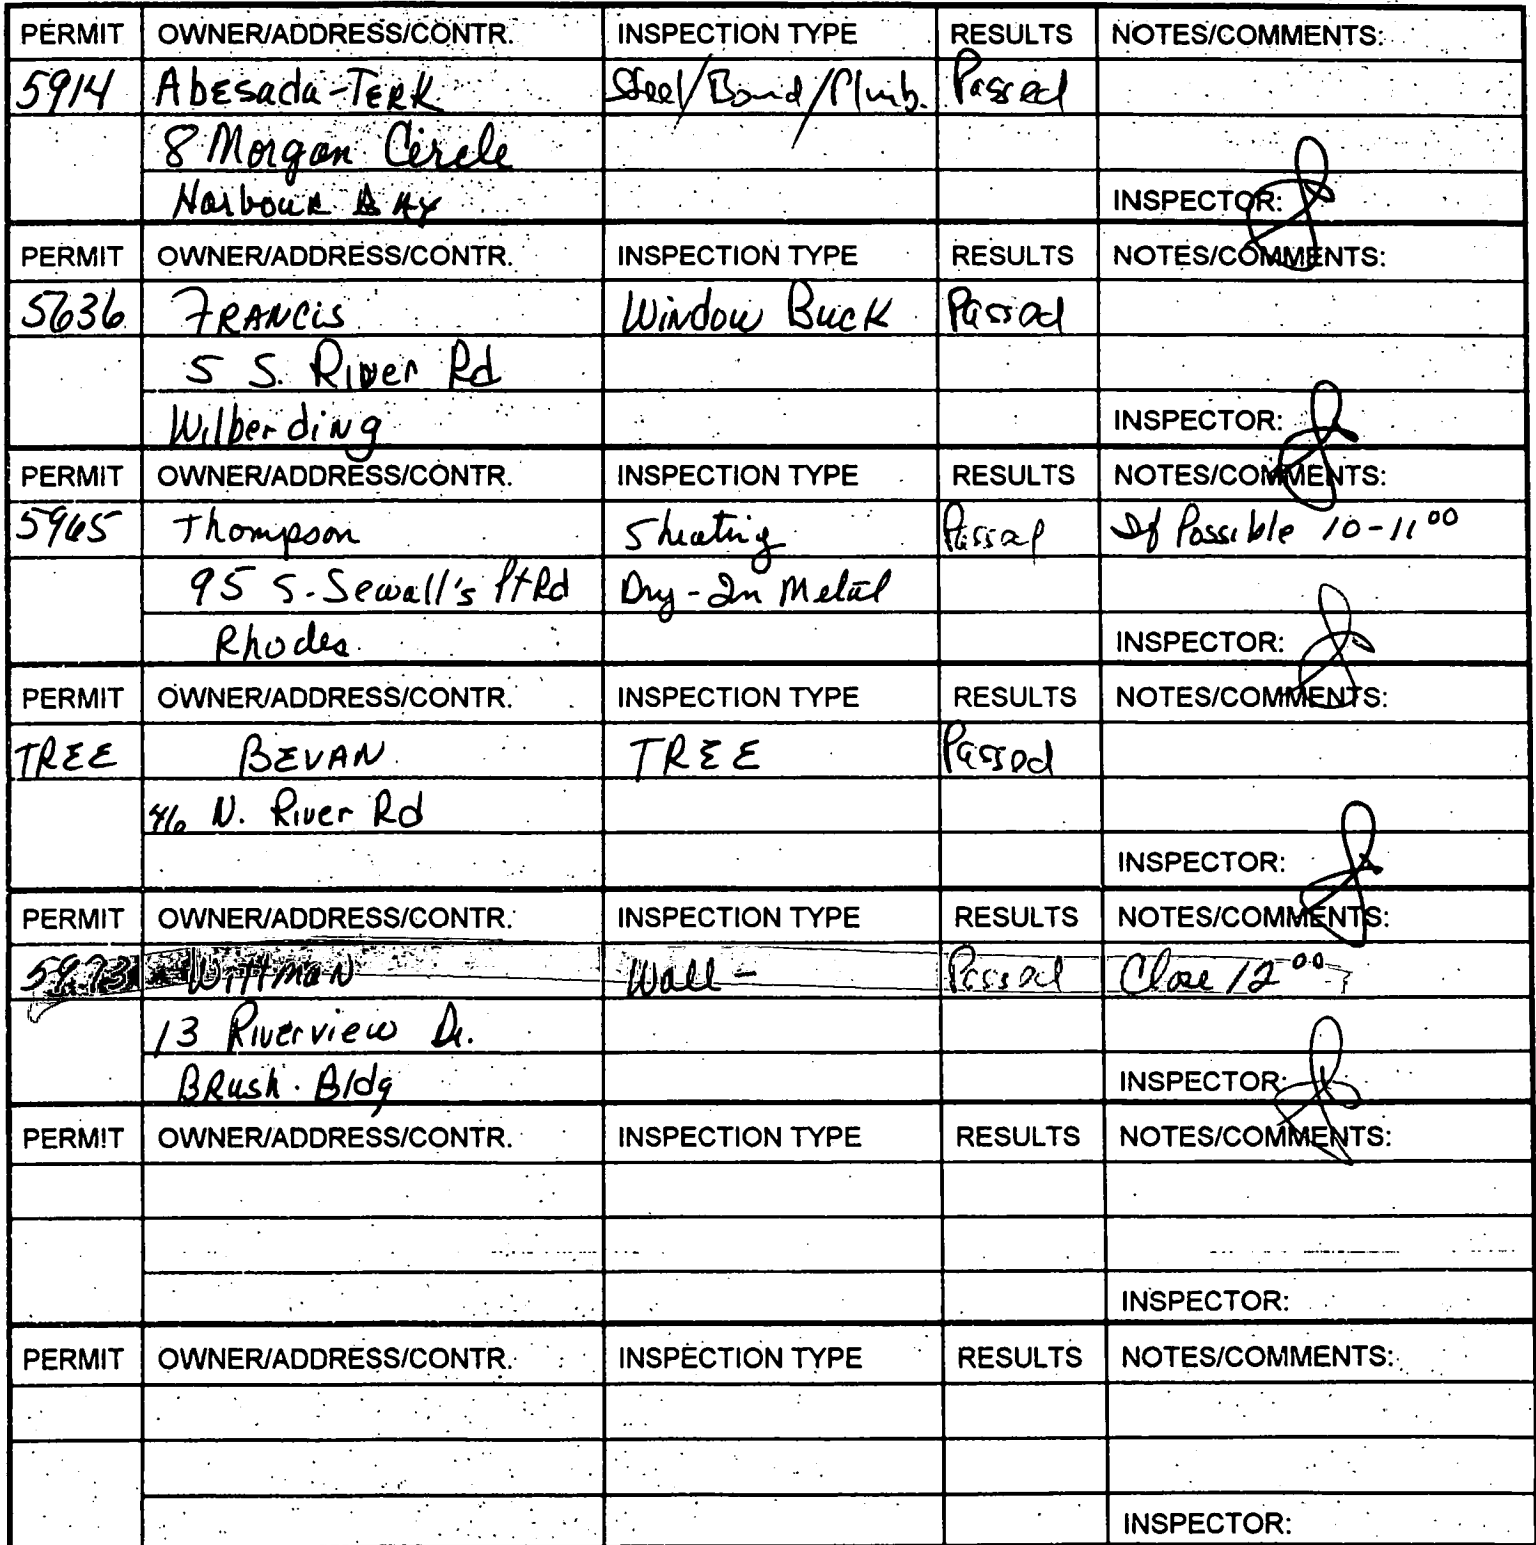 PERMIT OWNER/ADDRESS/CONTR. INSPECTION TYPE RESULTS NOTES/COMMENTS:
5914 Abesada-TERK Steel/Bond/Plumb. Passed
8 Morgan Circle
Harbour BAY INSPECTOR:
PERMIT OWNER/ADDRESS/CONTR. INSPECTION TYPE RESULTS NOTES/COMMENTS:
5636 FRANCIS Window Buck Passed
5 S. River Rd
Wilberding INSPECTOR:
PERMIT OWNER/ADDRESS/CONTR. INSPECTION TYPE RESULTS NOTES/COMMENTS:
5965 Thompson Sheating Passed If Possible 10-11⁰⁰
95 S. Sewall's Pt Rd Dry-In Metal
Rhodes INSPECTOR:
PERMIT OWNER/ADDRESS/CONTR. INSPECTION TYPE RESULTS NOTES/COMMENTS:
TREE BEVAN TREE Passed
46 N. River Rd
INSPECTOR:
PERMIT OWNER/ADDRESS/CONTR. INSPECTION TYPE RESULTS NOTES/COMMENTS:
5973 WITTMAN Wall - Passed Close 12⁰⁰
13 Riverview Dr.
BRush. Bldg INSPECTOR:
PERMIT OWNER/ADDRESS/CONTR. INSPECTION TYPE RESULTS NOTES/COMMENTS:
INSPECTOR:
PERMIT OWNER/ADDRESS/CONTR. INSPECTION TYPE RESULTS NOTES/COMMENTS:
INSPECTOR: